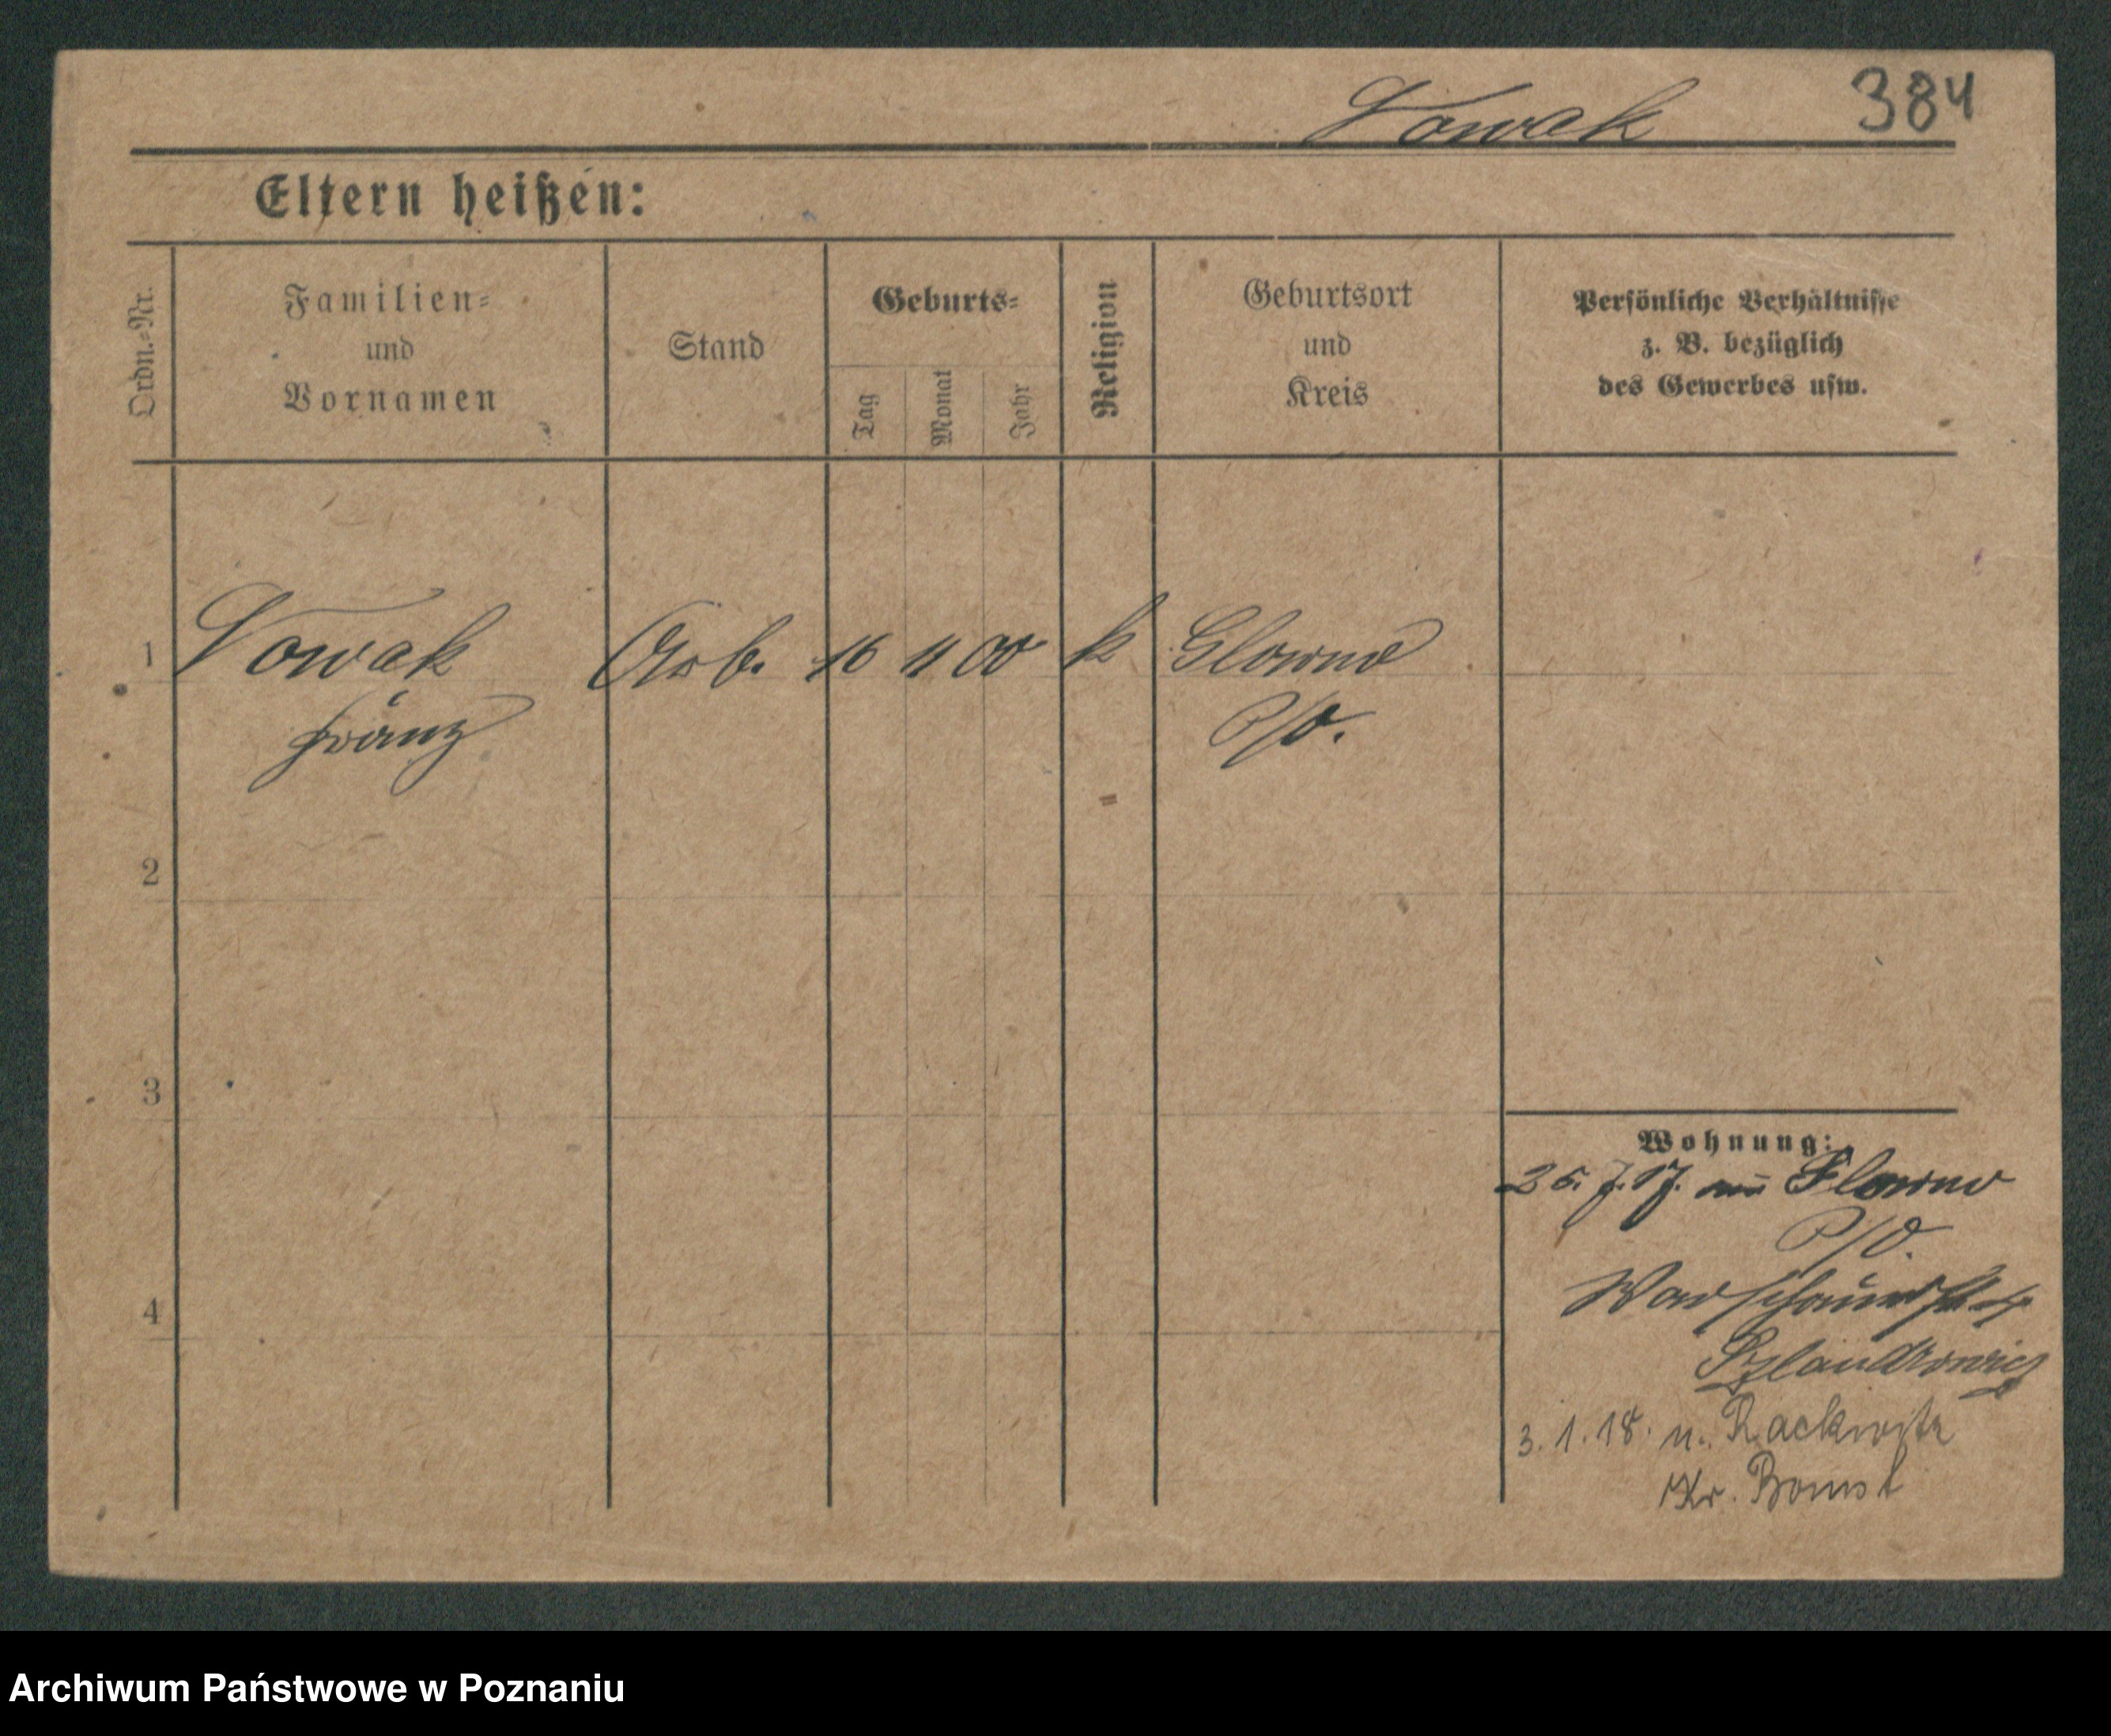 Nowak 384
Eltern heißen:
Ordn.-Nr.
Familien-
und
Vornamen
Stand
Geburts-
Tag
Monat
Jahr
Religion
Geburtsort
und
Kreis
Persönliche Verhältnisse
z. B. bezüglich
des Gewerbes usw.
1 Nowak Arb. 16 11 00 k Glowno
Franz P/O.
2
3
4
Wohnung:
25. 7. 17. Glowno
P/O.
3. 1. 18. n. Rackwitz
Kr. Bomst
Archiwum Państwowe w Poznaniu